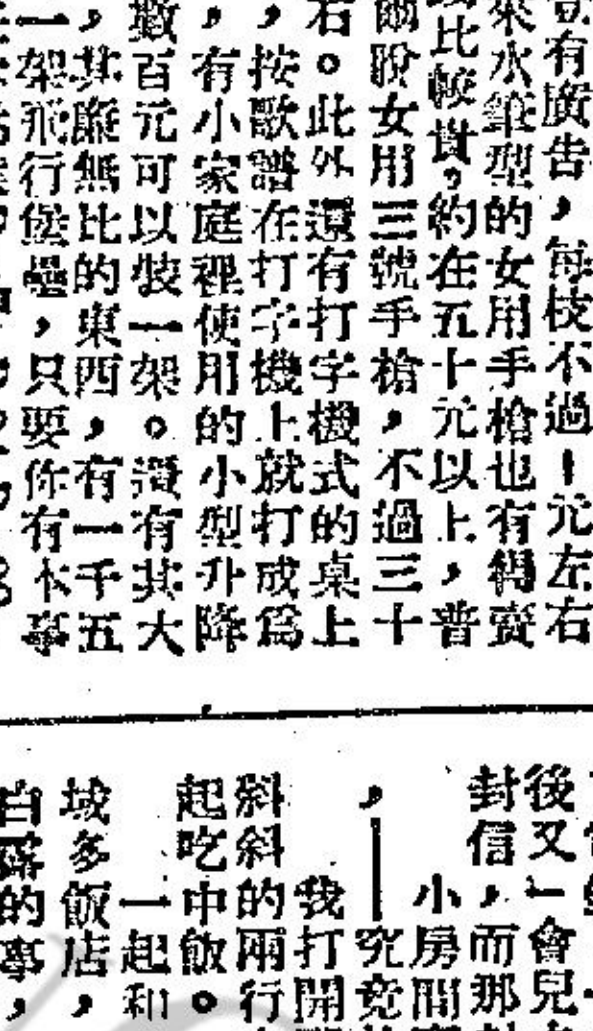 有廣告，每枝不過十元左右
來水筆型的女用手槍也有得賣
比較貴，約在五十元以上，普
爾脫女用三號手槍，不過三十
右。此外還有打字機式的桌上
，按歌譜在打字機上就打成爲
，有小家庭裡使用的小型升降
數百元可以裝一架。還有其大
，其廉無比的東西，有一千五
一架飛行堡壘，只要你有本事
後又一會兒
封信，而那
小房間
，——究竟
我打開
斜斜的兩行
起吃中飯。
一起和
域多飯店，
白露的事，